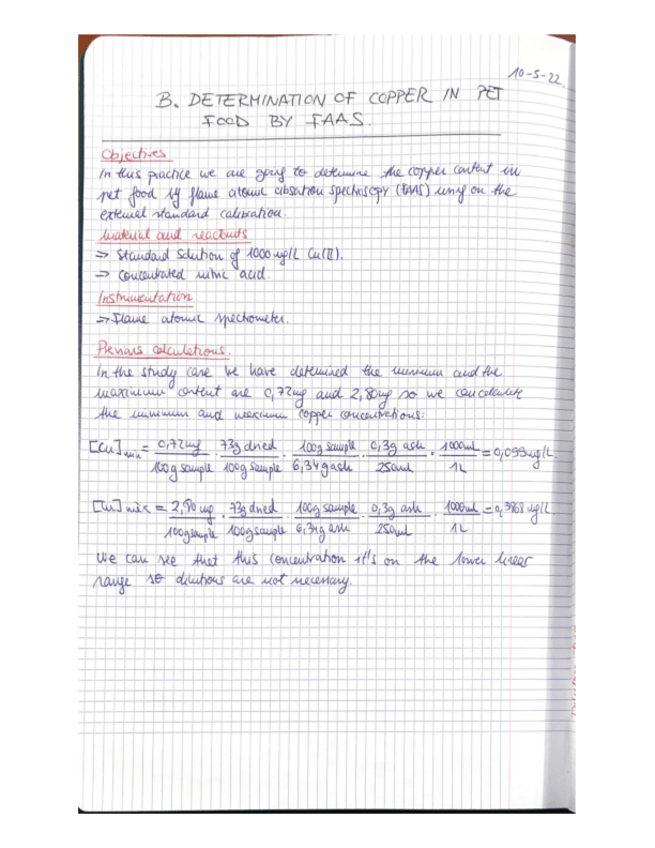 10-5-22.
B. DETERMINATION OF COPPER IN PET
FOOD BY FAAS.
Objectives
In this practice we are going to determine the copper content in
pet food by flame atomic absortion spectroscopy (FAAS) using on the
external standard calibration.
Material and reactants
⇒ Standard solution of 1000 mg/L Cu(II).
⇒ Concentrated nitric acid.
Instrumentation
⇒ Flame atomic spectrometer.
Previous calculations.
In the study case we have determined the minimum and the
maximum content are 0,72mg and 2,80mg so we can calculate
the minimum and maximum copper concentrations:
[Cu]min = 0,72mg/100g sample · 73g dried/100g sample · 100g sample/6,34g ash · 0,3g ash/250ml · 1000ml/1L = 0,099mg/L.
[Cu]máx = 2,80mg/100g sample · 73g dried/100g sample · 100g sample/6,34g ash · 0,3g ash/250ml · 1000ml/1L = 0,3868 mg/L
We can see that this concentration it's on the lower linear
range so dilutions are not necessary.